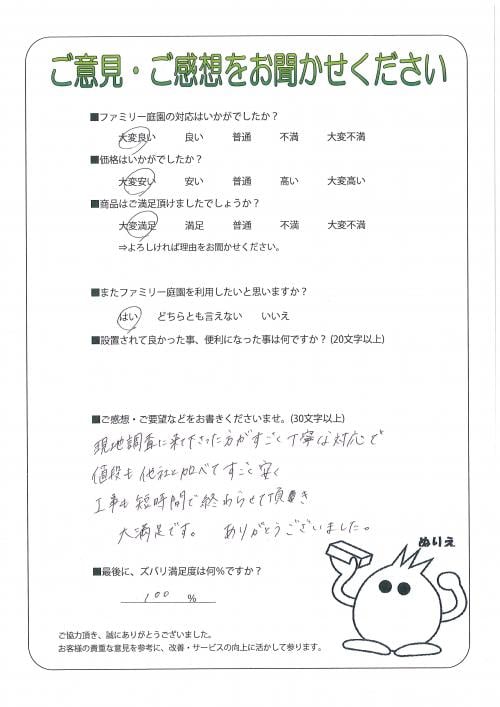 ご意見・ご感想をお聞かせください
■ファミリー庭園の対応はいかがでしたか？
大変良い　良い　普通　不満　大変不満
■価格はいかがでしたか？
大変安い　安い　普通　高い　大変高い
■商品はご満足頂けましたでしょうか？
大変満足　満足　普通　不満　大変不満
⇒よろしければ理由をお聞かせください。
■またファミリー庭園を利用したいと思いますか？
はい　どちらとも言えない　いいえ
■設置されて良かった事、便利になった事は何ですか？(20文字以上)
■ご感想・ご要望などをお書きくださいませ。(30文字以上)
現地調査に来て下さった方がすごく丁寧な対応で
値段も他社と比べてすごく安く
工事も短時間で終わらせて頂き
大満足です。　ありがとうございました。
ぬりえ
■最後に、ズバリ満足度は何%ですか？
100 %
ご協力頂き、誠にありがとうございました。
お客様の貴重な意見を参考に、改善・サービスの向上に活かして参ります。